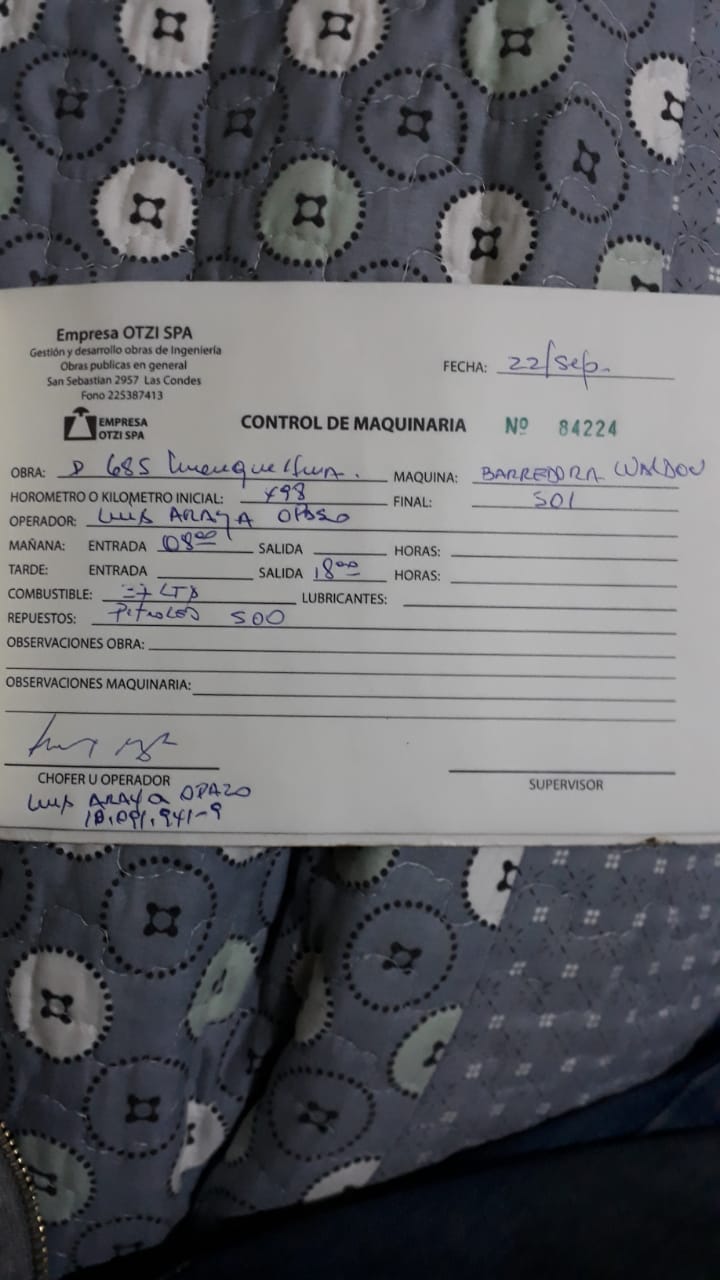 Empresa OTZI SPA
Gestión y desarrollo obras de Ingeniería
Obras publicas en general
San Sebastian 2957 Las Condes
Fono 225387413
FECHA: 22/Sep.
EMPRESA
OTZI SPA
CONTROL DE MAQUINARIA Nº 84224
OBRA: D 685 MAQUINA: BARREDORA WALDON
HOROMETRO O KILOMETRO INICIAL: 498 FINAL: 501
OPERADOR: Luis ARAYA OPAZO
MAÑANA: ENTRADA 08:00 SALIDA HORAS:
TARDE: ENTRADA SALIDA 18:00 HORAS:
COMBUSTIBLE: LTS LUBRICANTES:
REPUESTOS: Petroleo 500
OBSERVACIONES OBRA:
OBSERVACIONES MAQUINARIA:
CHOFER U OPERADOR
SUPERVISOR
Luis ARAYA OPAZO
10.091.941-9